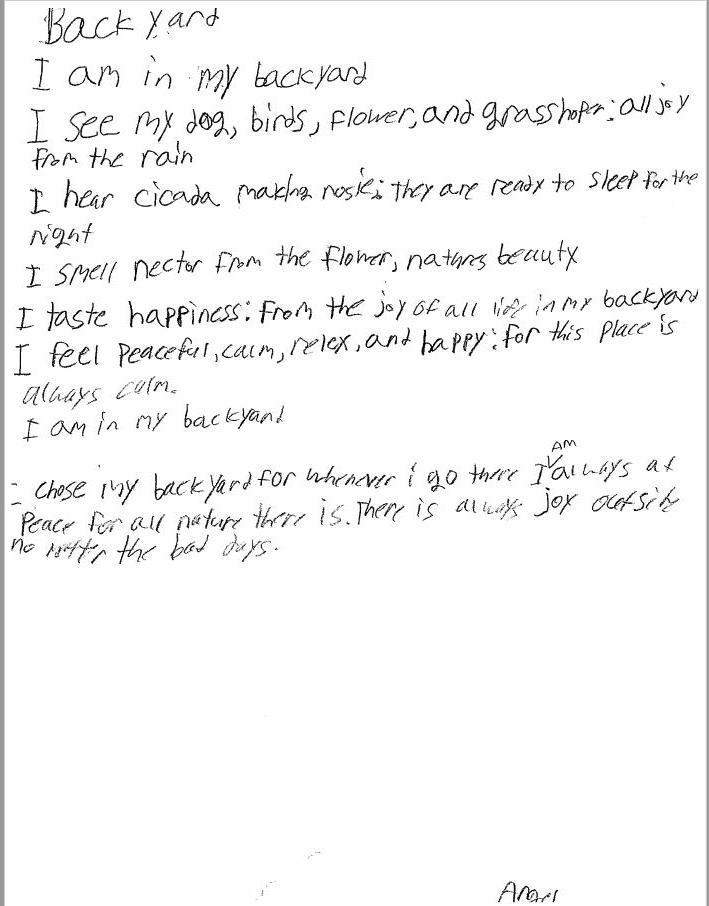 Backyard
I am in my backyard
I see my dog, birds, flower, and grasshoper; all joy
from the rain
I hear cicada making nosie; they are ready to sleep for the
night
I smell nector from the flower, natures beauty
I taste happiness: from the joy of all life in my backyard
I feel peaceful, calm, relex, and happy: for this place is
always calm.
I am in my backyard
AM
I chose my backyard for whenever i go there I always at
Peace for all nature there is. There is always joy outside
no matter the bad days.